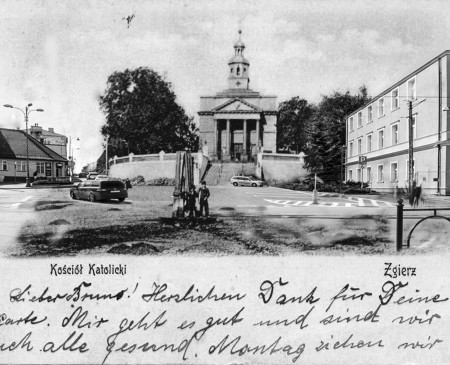 Kościół Katolicki
Zgierz
Lieber Bruno! Herzlichen Dank für Deine
Carte. Mir geht es gut und sind wir
auch alle gesund. Montag ziehen wir